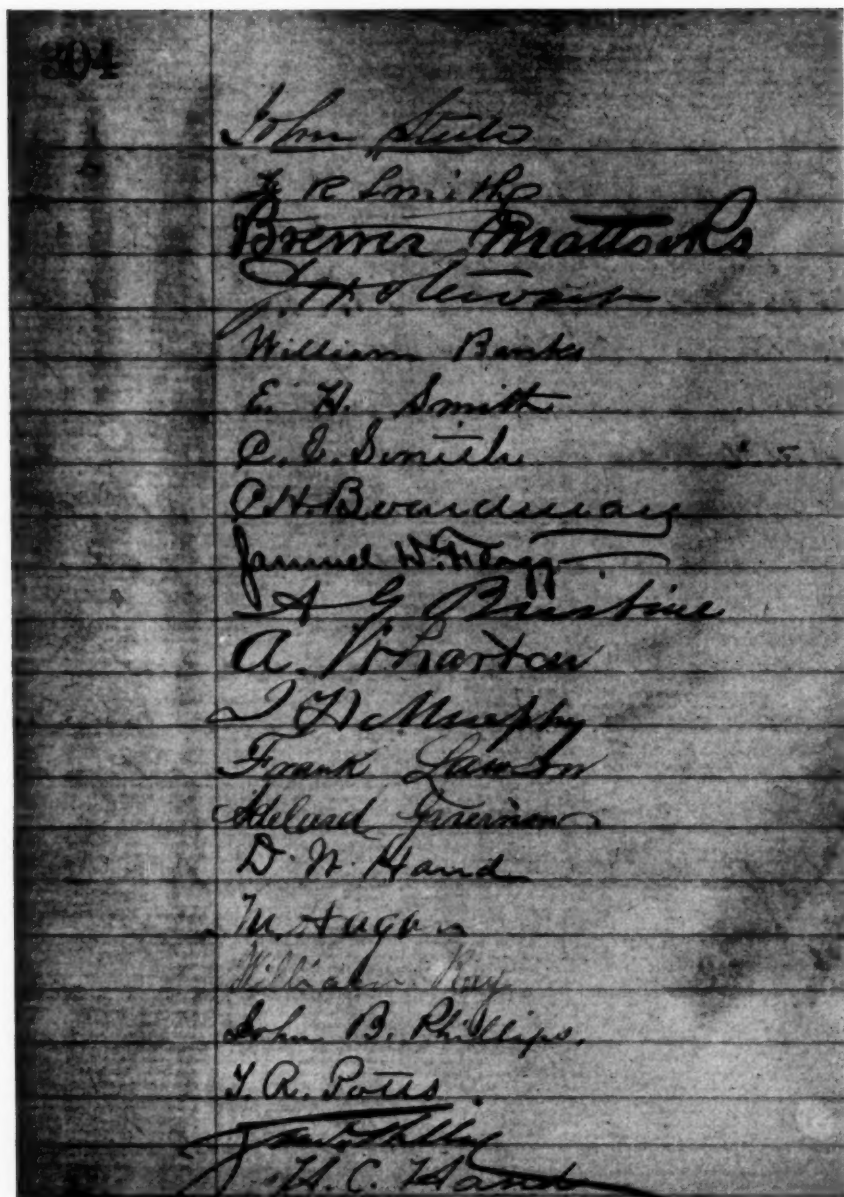 304
John Steele
F R Smith
Brewer Mattocks
J. H. Stewart
William Banks
E. H. Smith
C. E. Smith
C H Boardman
Samuel D. Flagg
A G Brisbine
A. Wharton
J H Murphy
Frank Lawson
Adelard Guernon
D. W. Hand
M. Hagan
William Kay
John B. Phillips.
T. R. Potts.
H. C. Hand